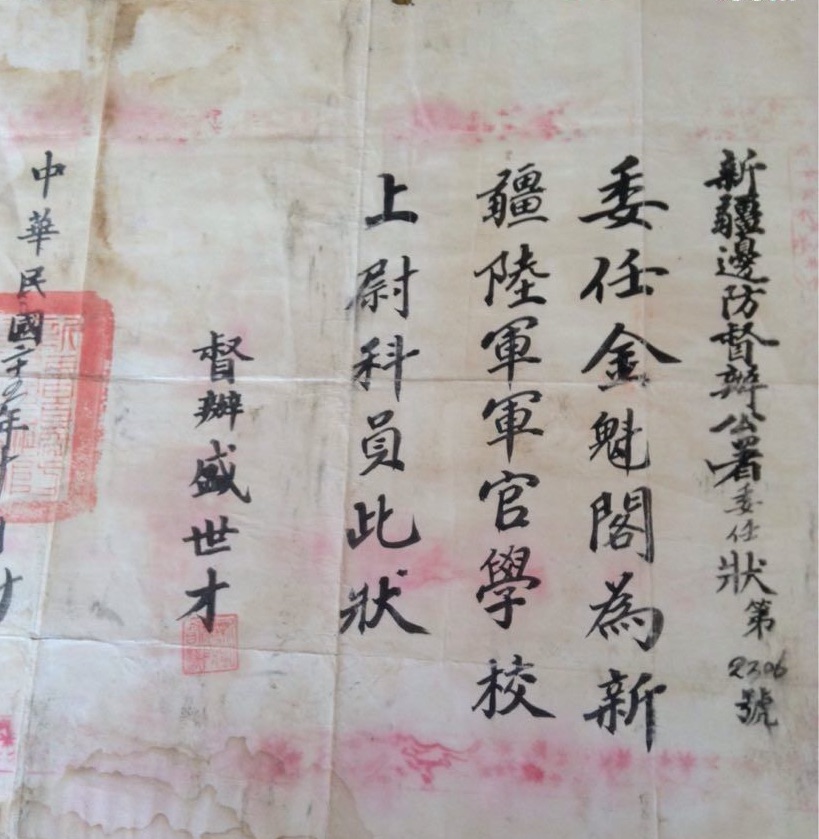 新疆邊防督辦公署委任狀第2306號
委任金魁閣為新
疆陸軍軍官學校
上尉科員此狀
督辦盛世才
中華民國二十五年月